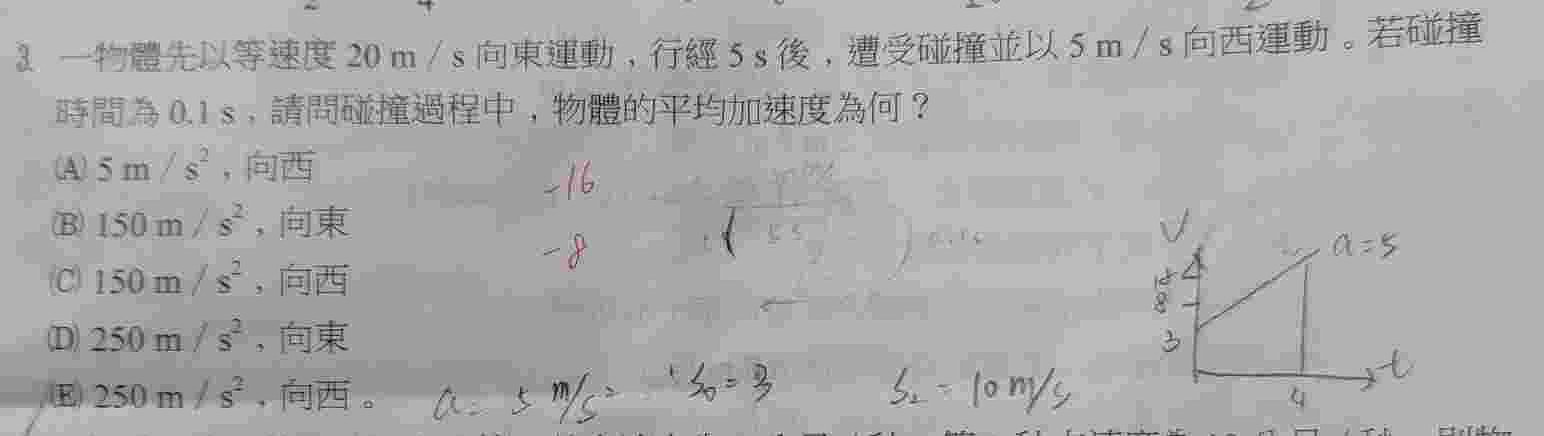 3. 一物體先以等速度 20 m / s 向東運動，行經 5 s 後，遭受碰撞並以 5 m / s 向西運動。若碰撞
時間為 0.1 s，請問碰撞過程中，物體的平均加速度為何？
(A) 5 m / s²，向西
(B) 150 m / s²，向東
(C) 150 m / s²，向西
(D) 250 m / s²，向東
(E) 250 m / s²，向西。
-16
-8
V
a=5
8
3
t
4
a= 5 m/s²
S₀=3
S₂=10 m/s